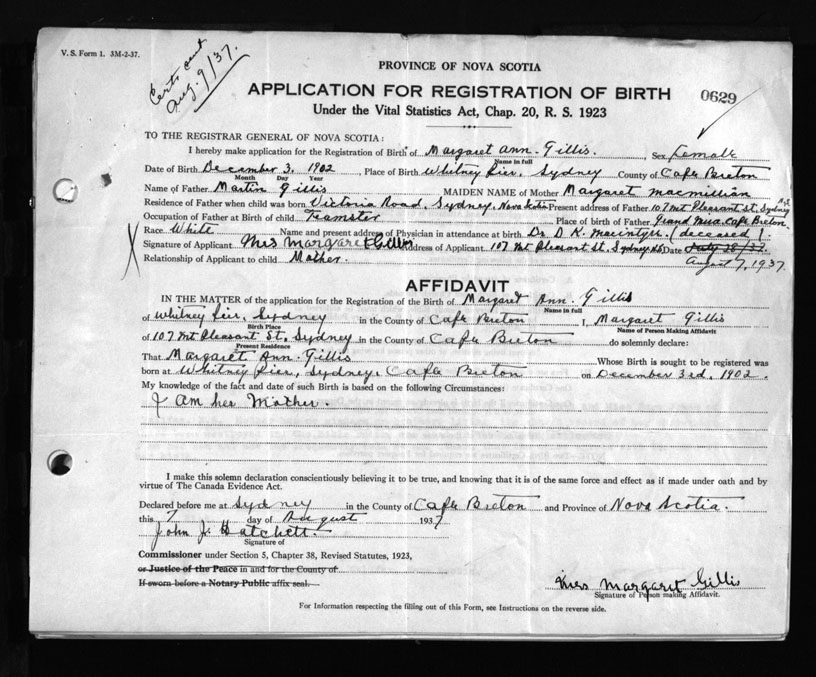 V. S. Form 1. 3M-2-37.
Certs sent
Aug. 9/37.
PROVINCE OF NOVA SCOTIA
APPLICATION FOR REGISTRATION OF BIRTH
0629
Under the Vital Statistics Act, Chap. 20, R. S. 1923
TO THE REGISTRAR GENERAL OF NOVA SCOTIA:
I hereby make application for the Registration of Birth of Margaret Ann. Gillis. Sex Female
Name in full
Date of Birth December 3, 1902 Place of Birth Whitney Pier, Sydney County of Cape Breton
Month Day Year
Name of Father Martin Gillis MAIDEN NAME of Mother Margaret Macmillian
Residence of Father when child was born Victoria Road, Sydney, Nova Scotia Present address of Father 107 Mt Pleasant St. Sydney N.S.
Occupation of Father at Birth of child Teamster Place of birth of Father Grand Mira Cape Breton.
Race White Name and present address of Physician in attendance at birth Dr. D. K. Macintyre. (deceased).
Signature of Applicant Mrs Margaret Gillis Address of Applicant 107 Mt Pleasant St. Sydney NS Date July 28/37
August 7, 1937.
Relationship of Applicant to child Mother.
AFFIDAVIT
IN THE MATTER of the application for the Registration of the Birth of Margaret Ann. Gillis
Name in full
of Whitney Pier, Sydney in the County of Cape Breton I, Margaret Gillis
Birth Place Name of Person Making Affidavit
of 107 Mt Pleasant St. Sydney in the County of Cape Breton do solemnly declare:
Present Residence
That Margaret Ann. Gillis Whose Birth is sought to be registered was
born at Whitney Pier, Sydney, Cape Breton on December 3rd, 1902.
My knowledge of the fact and date of such Birth is based on the following Circumstances:
I am her Mother.
I make this solemn declaration conscientiously believing it to be true, and knowing that it is of the same force and effect as if made under oath and by
virtue of The Canada Evidence Act.
Declared before me at Sydney in the County of Cape Breton and Province of Nova Scotia.
this 7 day of August 1937
John J. Hatchett.
Signature of
Commissioner under Section 5, Chapter 38, Revised Statutes, 1923,
or Justice of the Peace in and for the County of
If sworn before a Notary Public affix seal.
Mrs Margaret Gillis
Signature of Person making Affidavit.
For Information respecting the filling out of this Form, see Instructions on the reverse side.